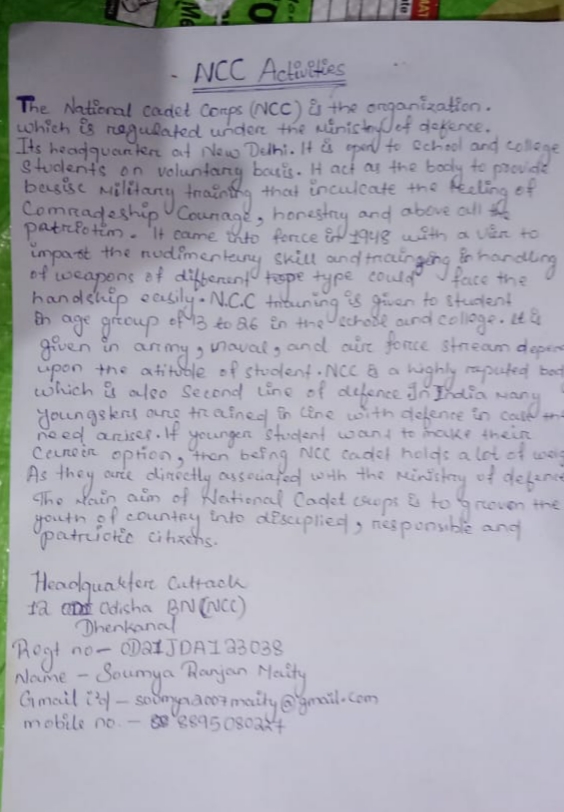 - NCC Activities
The National cadet Corps (NCC) is the organization.
which is regulated under the Ministry of defence.
Its headquarter at New Delhi. It is open to school and college
Students on voluntary basis. It act as the body to provide
basisc Military training that inculcate the feeling of
Comradeship Courage, honestry and above all
patriotim. It came into force in 1948 with a view to
impart the rudimentary skill and training in handling
of weapons of different type could face the
handship easily. N.C.C training is given to student
in age group of 13 to 26 in the schole and college. It is
given in army, naval, and air force stream depen
upon the atitude of student. NCC is a highly reputed bod
which is also Second line of defence In India Many
youngsters are trained in line with defence in case the
need arises. If younger student want to make their
option, then being NCC cadet holds a lot of weig
As they are directly associated with the Ministry of defence
The Main aim of National Cadet crops is to groven the
youth of country into discuplied, responsible and
patriotic citizens.
Headquakter Cuttack
12 Odisha BN (NCC)
Dhenkanal
Regt no - OD21JDA123038
Name - Soumya Ranjan Maity
Gmail i'd - soumya2007maity@gmail.com
mobile no. - 8895080227